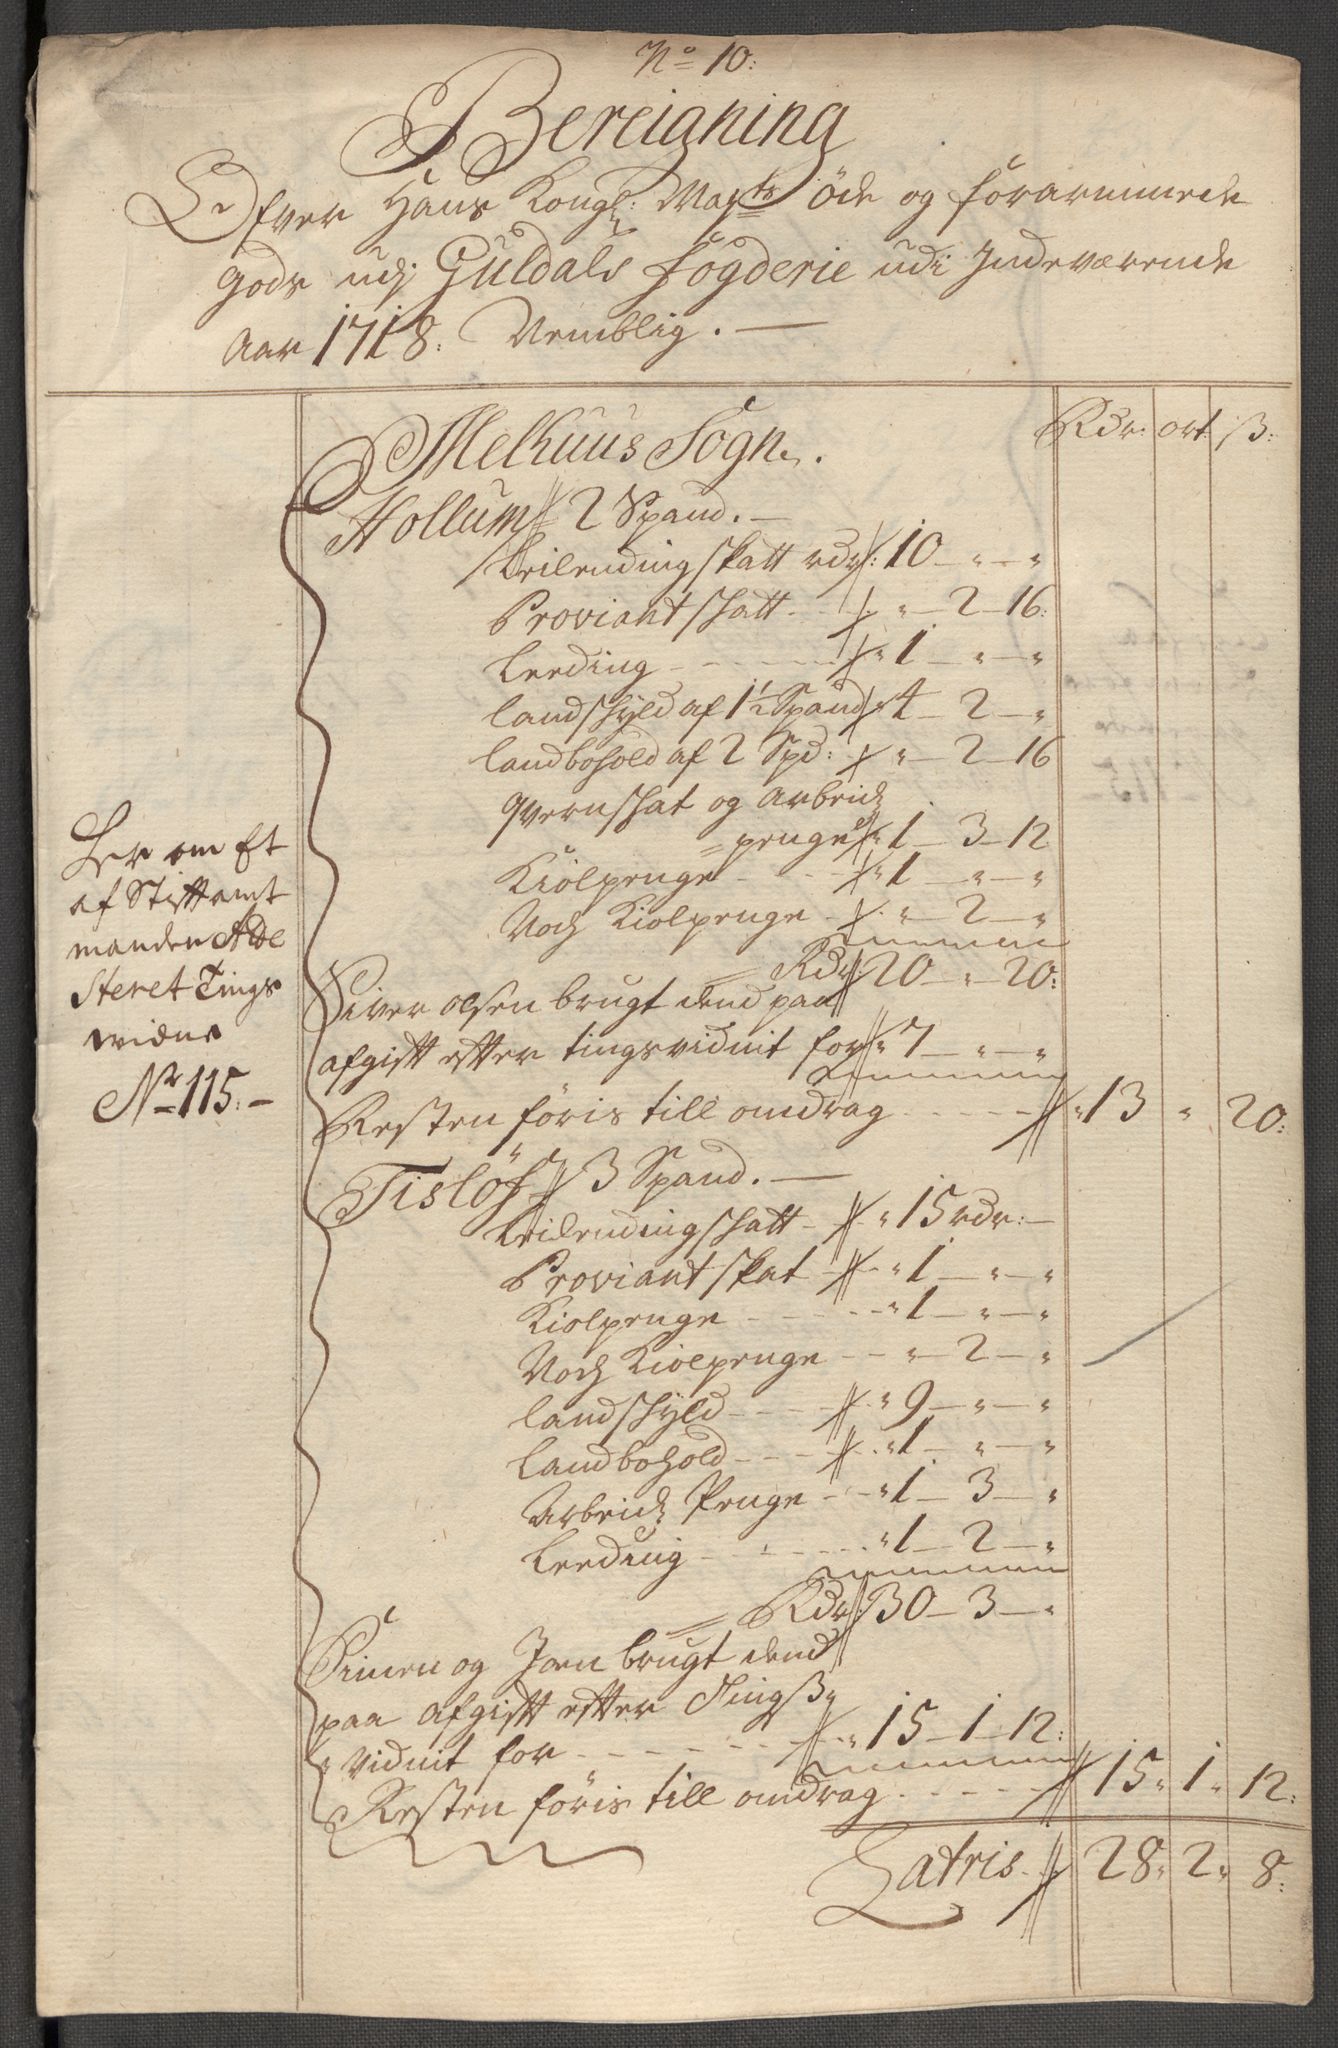 No 10:
Bereigning
Ofver Hans Kongl: Mayts öde og forarmmede
gods udj Guldals fogderie udi Indeværende
Aar 1718. Nemblig. —
Rdr: ort: ß:
Melhuus Sogn.
Hollum 2 Spand. —
Leilendings skatt rdr: 10 — " — "
Proviant skatt " — 2 — 16:
Leeding 1 — " — "
landskyld af 1 1/2 Spand 4 — 2 — "
landbohold af 2 Spd: " — 2 — 16
qvernskat og arbeids
penge 1 — 3 — 12
Kiölpenge 1 — " — "
Noch Kiolpenge " — 2 — "
Rdr 20 — " — 20:
Siver olsen brugt dend paa
afgift efter tingsvidnit for 7 — " — "
Resten föris till omdrag 13 " 20:
Tislöf 3 Spand. —
Leilendingskatt 15 rdr: —
Proviant skat 1 — " — "
Kiolpenge 1 — " — "
Noch Kiolpenge " — 2 — "
landskyld 9 — " — "
Landbohold 1 — " — "
Arbeids Penge 1 — 3 — "
Leeding 1 — 2 — "
Rdr 30 — 3 — "
Simen og Joen brugt dend
paa afgift efter Tingß
vidnit for 15 — 1 — 12:
Resten föris till omdrag 15 " 1 " 12:
Latris 28 " 2 " 8:
Her om Et
af Stiftamt
manden Atte
steret Tings
widne
No 115: —